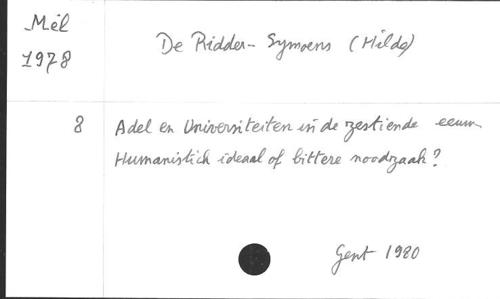 Mél
1978
De Ridder-Symoens (Hilde)
8
Adel en Universiteiten in de zestiende eeuw
Humanistich ideaal of bittere noodzaak?
Gent 1980